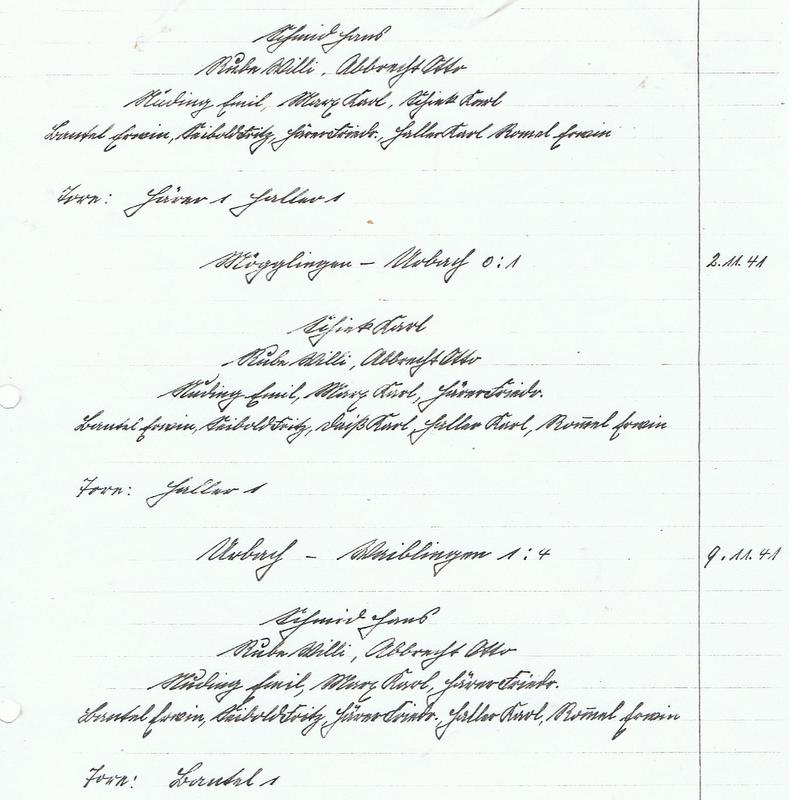 Schmid Hans
Rube Willi, Abbrecht Otto
Nuding Emil, Marx Karl, Schiek Karl
Bantel Erwin, Seibold Fritz, Härer Friedr., Haller Karl Romel Erwin
Tore: Härer 1 Haller 1
Mögglingen – Urbach 0:1 2.11.41
Schiek Karl
Rube Willi, Abbrecht Otto
Nuding Emil, Marx Karl, Härer Friedr.
Bantel Erwin, Seibold Fritz, Daiß Karl, Haller Karl, Rom̄el Erwin
Tore: Haller 1
Urbach – Waiblingen 1:4 9.11.41
Schmid Hans
Rube Willi, Abbrecht Otto
Nuding Emil, Marx Karl, Härer Friedr.
Bantel Erwin, Seibold Fritz, Härer Friedr. Haller Karl, Rom̄el Erwin
Tore: Bantel 1